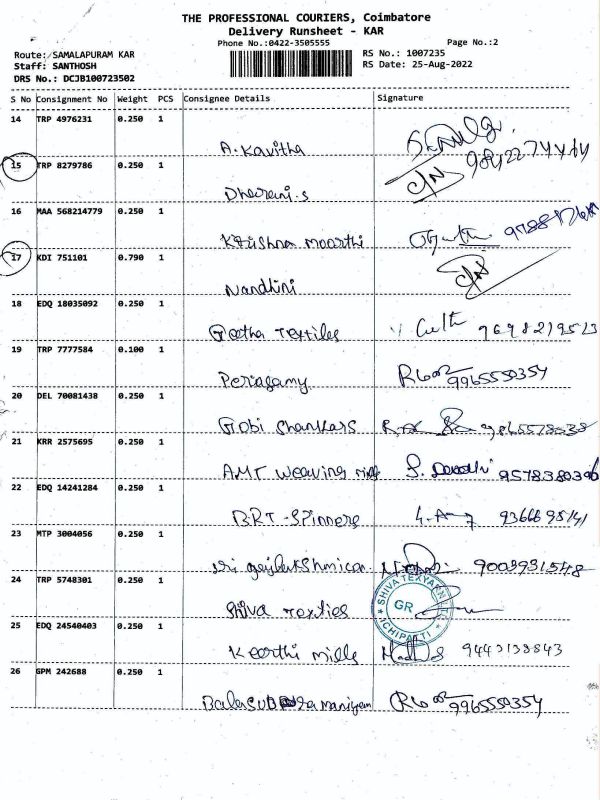 THE PROFESSIONAL COURIERS, Coimbatore
Delivery Runsheet - KAR
Phone No.:0422-3505555
Page No.:2
Route: SAMALAPURAM KAR
RS No.: 1007235
Staff: SANTHOSH
RS Date: 25-Aug-2022
DRS No.: DCJB100723502
S No Consignment No Weight PCS Consignee Details Signature
14 TRP 4976231 0.250 1
A. Kavitha
15 TRP 8279786 0.250 1
C/N
Dharani.s
16 MAA 568214779 0.250 1
Krishna moorthi
17 KDI 751101 0.790 1
C/N
Nandhini
18 EDQ 18035092 0.250 1
Geetha Textiles
19 TRP 7777584 0.100 1
Periasamy 9965550354
20 DEL 70081438 0.250 1
Gobi Shankars
21 KRR 2575695 0.250 1
AMT weaving mills 9578380396
22 EDQ 14241284 0.250 1
BRT - Spinners
23 MTP 3004056 0.250 1
Sri 9003931548
24 TRP 5748301 0.250 1
Shiva Textiles
SHIVA TEXYARN
GR
ICHIPATTI
25 EDQ 24540403 0.250 1
Keerthi mills 9443138843
26 GPM 242688 0.250 1
9965550354